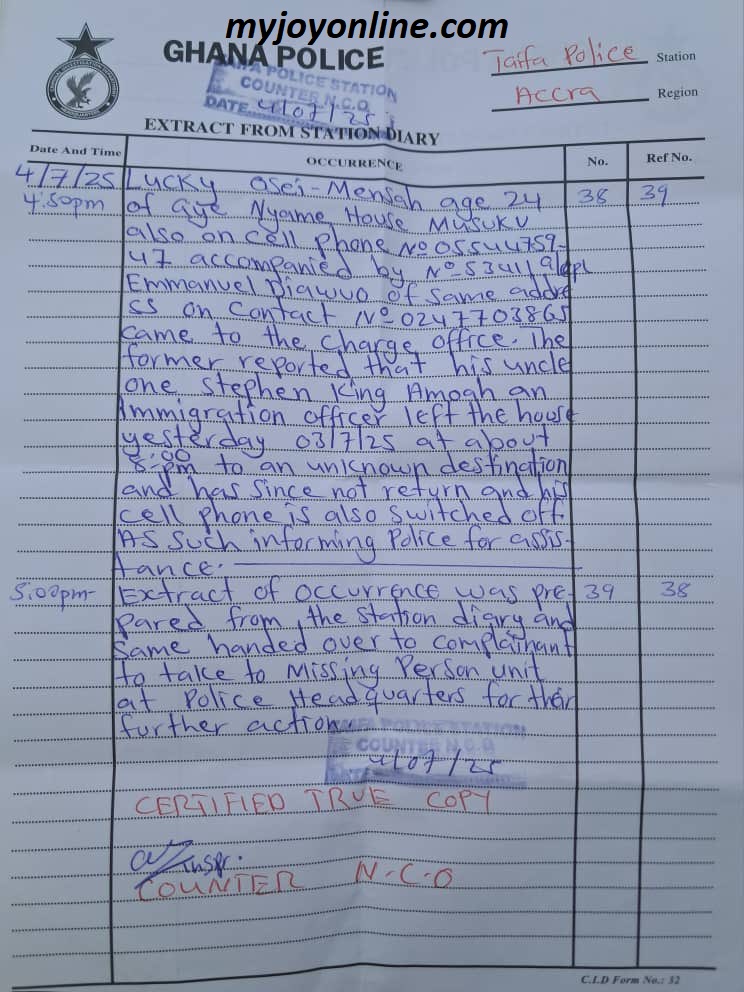 myjoyonline.com
GHANA POLICE
Taifa Police Station
Accra Region
TAIFA POLICE STATION
COUNTER N.C.O
DATE 4/07/25
EXTRACT FROM STATION DIARY
Date And Time OCCURRENCE No. Ref No.
4/7/25 Lucky Osei-Mensah age 24 38 39
4:50pm of Gye Nyame House Musuku
also on cell phone No 05544759-
47 accompanied by No 53411 g/cpl
Emmanuel of same addre
ss on contact No 0247703865
came to the charge office. The
former reported that his uncle
one Stephen King Amoah an
Immigration officer left the house
yesterday 03/7/25 at about
8:00
pm to an unknown destination
and has since not return and his
cell phone is also switched off.
As such informing Police for assis-
tance.
5:00pm- Extract of occurrence was pre- 39 38
pared from the station diary and
same handed over to complainant
to take to Missing Person unit
at Police Headquarters for their
further action.
TAIFA POLICE STATION
COUNTER N.C.O
DATE 4/07/25
CERTIFIED TRUE COPY
Inspr.
COUNTER N.C.O
C.I.D Form No.: 32